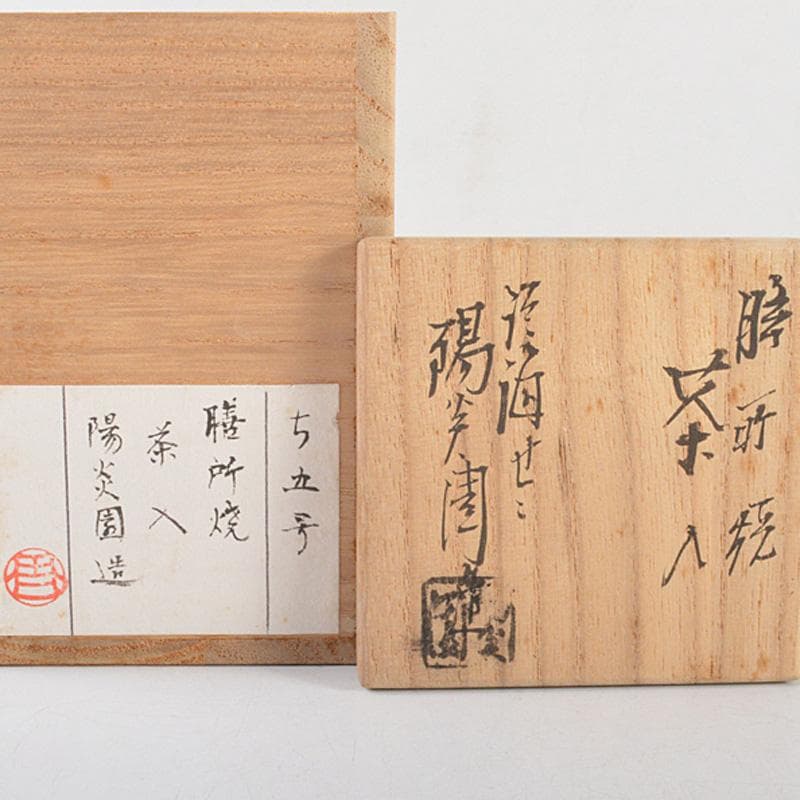 ち五号
膳所焼
茶入
陽炎園造
膳所焼
茶入
陽炎園